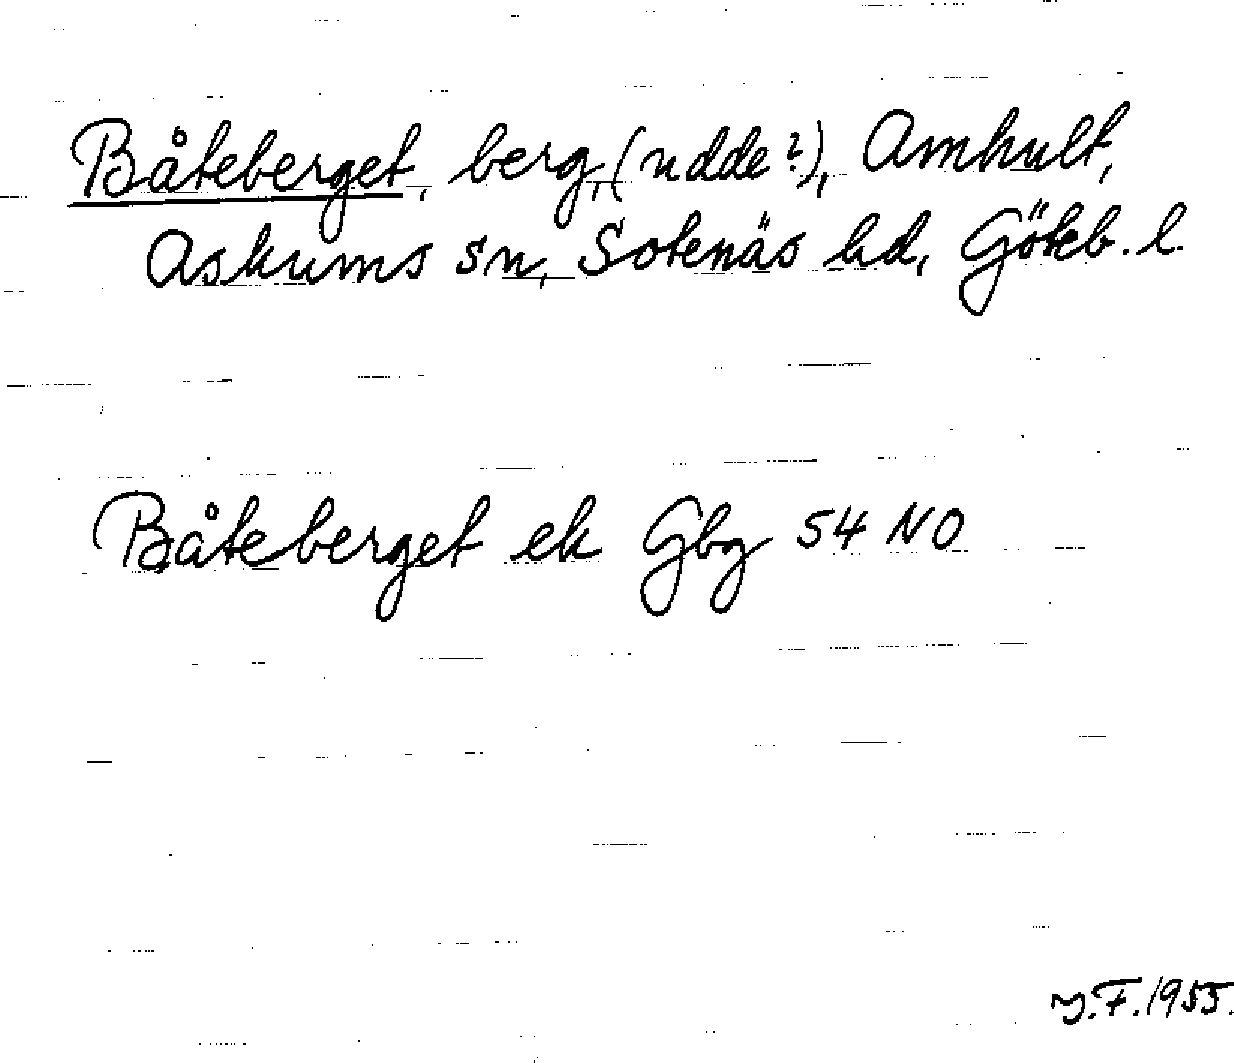 Båteberget, berg, (udde?), Amhult,
Askums sn, Sotenäs hd, Göteb. l.
Båteberget ek Gbg 54 NO
y.F. 1955.